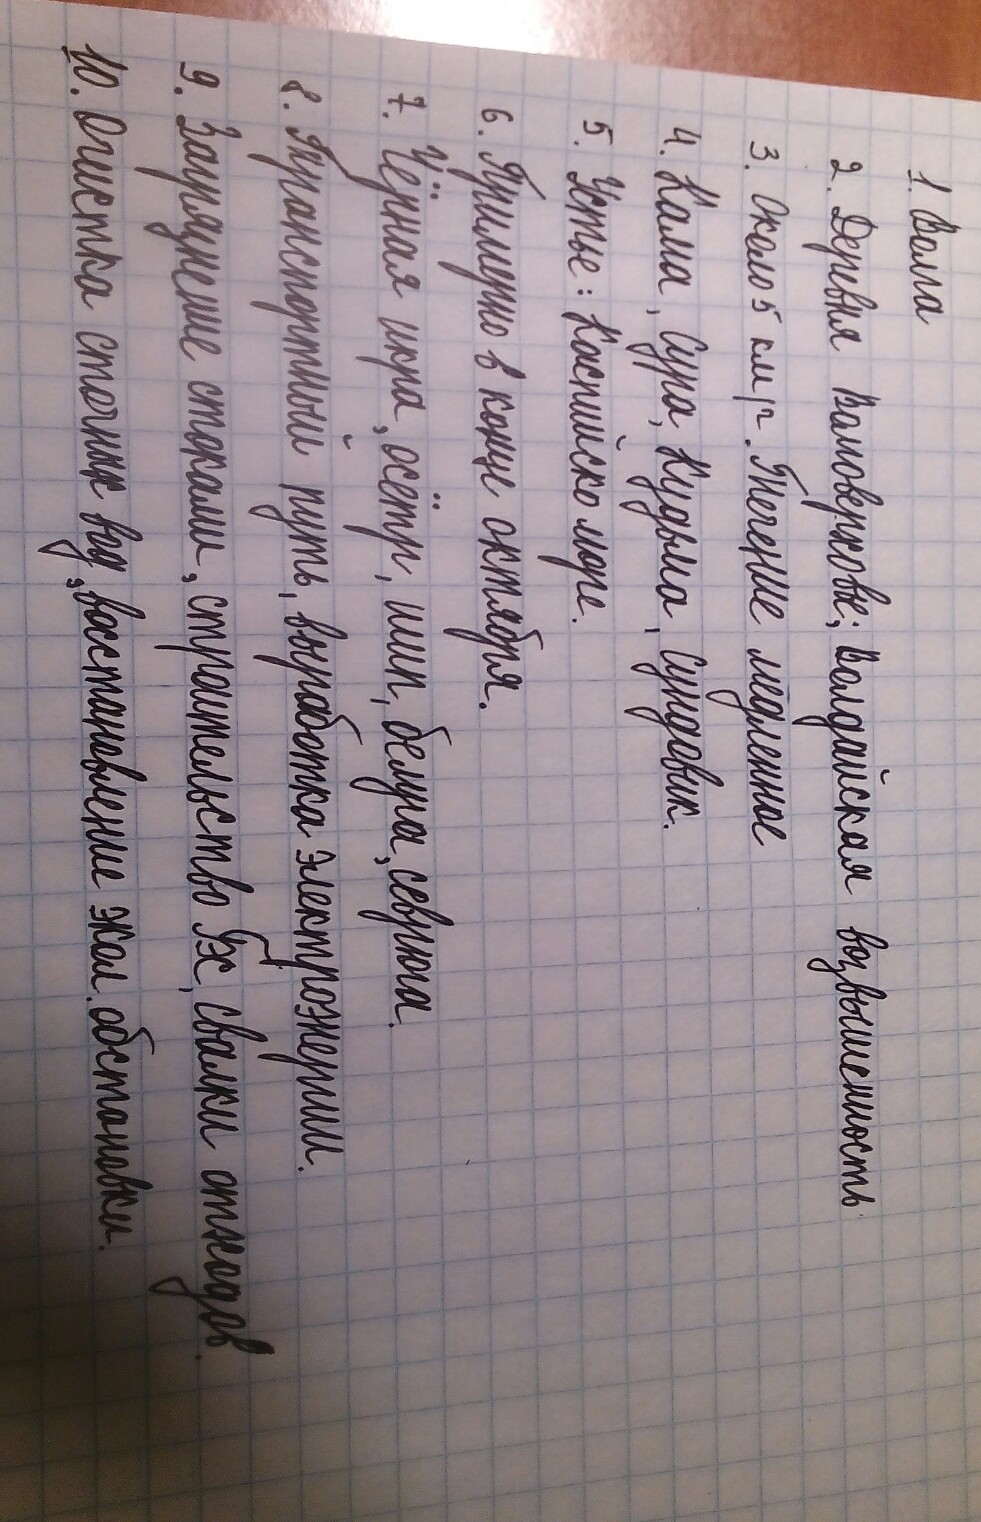 1. Волга
2. Деревня Волговерховье; Валдайская возвышенность
3. Около 5 км/г. Течение медленное
4. Кама, Сура, Кудьма, Сундовик.
5. Устье: Каспийско море.
6. Примерно в конце октября.
7. Чёрная икра, осётр, шип, белуга, севрюга.
8. Транспортный путь, выработка электроэнергии.
9. Загрязнение стоками, строительство ГЭС, свалки отходов.
10. Очистка сточных вод, восстановление экол. обстановки.